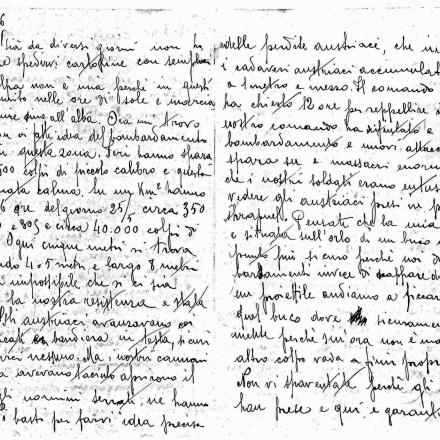 6
già da diversi giorni non ho
spedirvi cartoline con semplici
colpa non è una perchè in questi
nelle ore di sole e marcia
sino all'alba. Ora mi trovo
idea del bombardamento
in questa zona. Ieri hanno spara
500 colpi di piccolo calibro e questa
nata calma. In un Km² hanno
6 ore del giorno 25/5 circa 350
e 305 e circa 40.000 colpi di
Ogni cinque metri si trova
4 o 5 metri e largo 8 metri
impossibile che ci sia
la nostra resistenza è stata
austriaci avanzavano
bandiera in testa, sicuri
nessuno. Ma i nostri cannoni
avevano taciuto aprirono il
gli uomini serrati, ne hanno
basti per farvi idea precisa
delle perdite austriaci, che
i cadaveri austriaci accumulat
a 1 metro e mezzo. Il comando
ha chiesto 12 ore per seppellire i
nostro comando ha rifiutato e
bombardamento e nuovi attacc
spara su e massacri enorm
che i nostri soldati erano entus
vedere gli austriaci presi in p
shrapnel. Pensate che la mia
è situata sull'orlo di un buco
punto più sicuro perchè noi d
bardamenti invece di scappare d
un proiettile andiamo a ficcar
quel buco dove sicuram
mente perchè sin ora non è ma
altro colpo vada a finir propri
Non vi spaventate perchè gli
han prese e qui è garantit